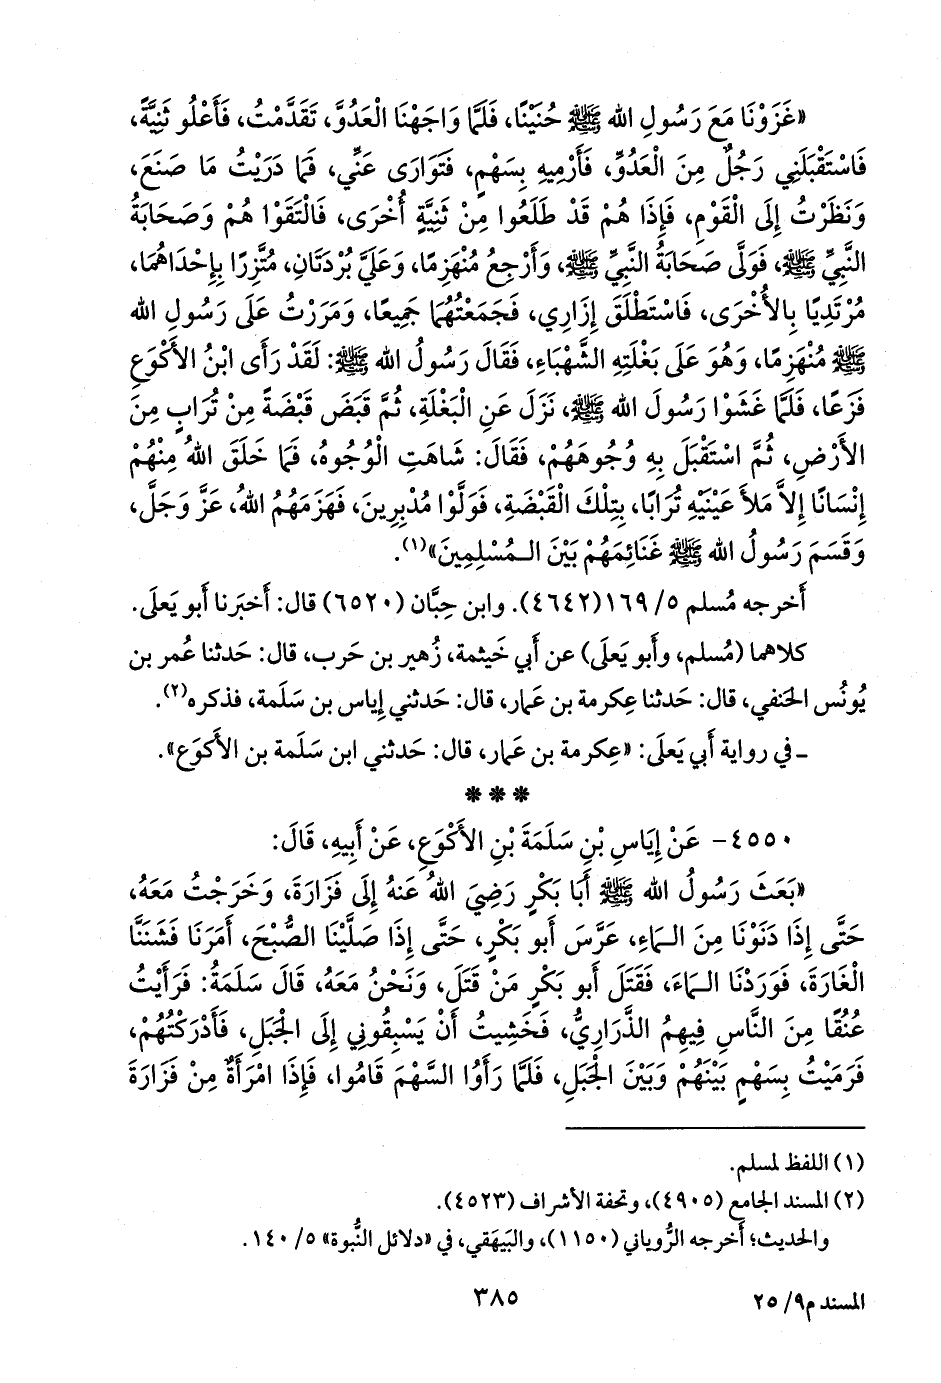 «غَزَوْنَا مَعَ رَسُولِ الله ﷺ حُنَيْنًا، فَلَمَّا وَاجَهْنَا الْعَدُوَّ، تَقَدَّمْتُ، فَأَعْلُو ثَنِيَّةً،
فَاسْتَقْبَلَنِي رَجُلٌ مِنَ الْعَدُوِّ، فَأَرْمِيهِ بِسَهْمٍ، فَتَوَارَى عَنِّي، فَمَا دَرَيْتُ مَا صَنَعَ،
وَنَظَرْتُ إِلَى الْقَوْمِ، فَإِذَا هُمْ قَدْ طَلَعُوا مِنْ ثَنِيَّةٍ أُخْرَى، فَالْتَقَوْا هُمْ وَصَحَابَةُ
النَّبِيِّ ﷺ، فَوَلَّى صَحَابَةُ النَّبِيِّ ﷺ، وَأَرْجِعُ مُنْهَزِمًا، وَعَلَيَّ بُرْدَتَانِ، مُتَّزِرًا بِإِحْدَاهُمَا،
مُرْتَدِيًا بِالأُخْرَى، فَاسْتَطْلَقَ إِزَارِي، فَجَمَعْتُهُمَا جَمِيعًا، وَمَرَرْتُ عَلَى رَسُولِ الله
ﷺ مُنْهَزِمًا، وَهُوَ عَلَى بَغْلَتِهِ الشَّهْبَاءِ، فَقَالَ رَسُولُ الله ﷺ: لَقَدْ رَأَى ابْنُ الأَكْوَعِ
فَزَعًا، فَلَمَّا غَشَوْا رَسُولَ الله ﷺ، نَزَلَ عَنِ الْبَغْلَةِ، ثُمَّ قَبَضَ قَبْضَةً مِنْ تُرَابٍ مِنَ
الأَرْضِ، ثُمَّ اسْتَقْبَلَ بِهِ وُجُوهَهُمْ، فَقَالَ: شَاهَتِ الْوُجُوهُ، فَمَا خَلَقَ اللهُ مِنْهُمْ
إِنْسَانًا إِلاَّ مَلأَ عَيْنَيْهِ تُرَابًا، بِتِلْكَ الْقَبْضَةِ، فَوَلَّوْا مُدْبِرِينَ، فَهَزَمَهُمُ اللهُ، عَزَّ وَجَلَّ،
وَقَسَمَ رَسُولُ الله ﷺ غَنَائِمَهُمْ بَيْنَ الـمُسْلِمِينَ»(١).
أَخرجه مُسلم ٥/ ١٦٩(٤٦٤٢). وابن حِبَّان (٦٥٢٠) قال: أَخبَرنا أَبو يَعلَى.
كلاهما (مُسلم، وأَبو يَعلَى) عن أَبي خَيثمة، زُهير بن حَرب، قال: حَدثنا عُمر بن
يُونُس الحَنفي، قال: حَدثنا عِكرمة بن عَمار، قال: حَدثني إِياس بن سَلَمة، فذكره(٢).
ـ في رواية أَبي يَعلَى: «عِكرمة بن عَمار، قال: حَدثني ابن سَلَمة بن الأَكوَع».
* * *
٤٥٥٠ - عَنْ إِيَاسِ بْنِ سَلَمَةَ بْنِ الأَكْوَعِ، عَنْ أَبِيهِ، قَالَ:
«بَعَثَ رَسُولُ الله ﷺ أَبَا بَكْرٍ رَضِيَ اللهُ عَنهُ إِلَى فَزَارَةَ، وَخَرَجْتُ مَعَهُ،
حَتَّى إِذَا دَنَوْنَا مِنَ الـمَاءِ، عَرَّسَ أَبو بَكْرٍ، حَتَّى إِذَا صَلَّيْنَا الصُّبْحَ، أَمَرَنَا فَشَنَنَّا
الْغَارَةَ، فَوَرَدْنَا الـمَاءَ، فَقَتَلَ أَبو بَكْرٍ مَنْ قَتَلَ، وَنَحْنُ مَعَهُ، قَالَ سَلَمَةُ: فَرَأَيْتُ
عُنُقًا مِنَ النَّاسِ فِيهِمُ الذَّرَارِيُّ، فَخَشِيتُ أَنْ يَسْبِقُونِي إِلَى الْجَبَلِ، فَأَدْرَكْتُهُمْ،
فَرَمَيْتُ بِسَهْمٍ بَيْنَهُمْ وَبَيْنَ الْجَبَلِ، فَلَمَّا رَأَوُا السَّهْمَ قَامُوا، فَإِذَا امْرَأَةٌ مِنْ فَزَارَةَ
(١) اللفظ لمسلم.
(٢) المسند الجامع (٤٩٠٥)، وتحفة الأشراف (٤٥٢٣).
والحديث؛ أَخرجه الرُّوياني (١١٥٠)، والبَيهَقي، في «دلائل النُّبوة» ٥/ ١٤٠.
المسند م٩/ ٢٥
٣٨٥